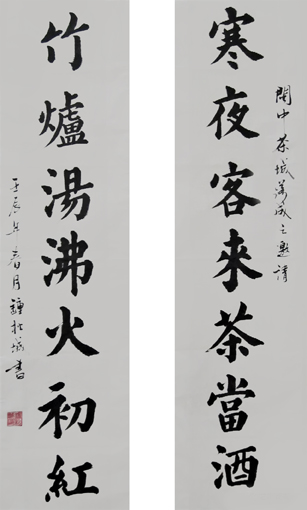 寒夜客來茶當酒
閩中茶城落成之邀請
竹爐湯沸火初紅
壬辰年春月鍾
書